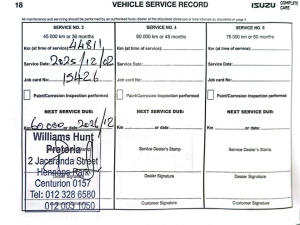 18 VEHICLE SERVICE RECORD ISUZU COMPLETE CARE
All maintenance and servicing should be performed by an authorised Isuzu dealer at the stipulated distances or time intervals as stipulated on page 4.
SERVICE NO. 3
45 000 km or 36 months
Km (at time of service): 44811
Service Date: 2025/12/02
Job card No: 15426
Paint/Corrosion Inspection performed
NEXT SERVICE DUE:
Km 60 000 or date 2026/12
Williams Hunt
Pretoria
2 Jacaranda Street
Hennops Park
Centurion 0157
Tel: 012 328 6580
012 003 1050
Dealer Signature
SERVICE NO. 4
60 000 km or 48 months
Km (at time of service):
Service Date:
Job card No:
Paint/Corrosion Inspection performed
NEXT SERVICE DUE:
Km or date
Service Dealer's Stamp
Dealer Signature
Customer Signature
SERVICE NO. 5
75 000 km or 60 months
Km (at time of service):
Service Date:
Job card No:
Paint/Corrosion Inspection performed
NEXT SERVICE DUE:
Km or date
Service Dealer's Stamp
Dealer Signature
Customer Signature